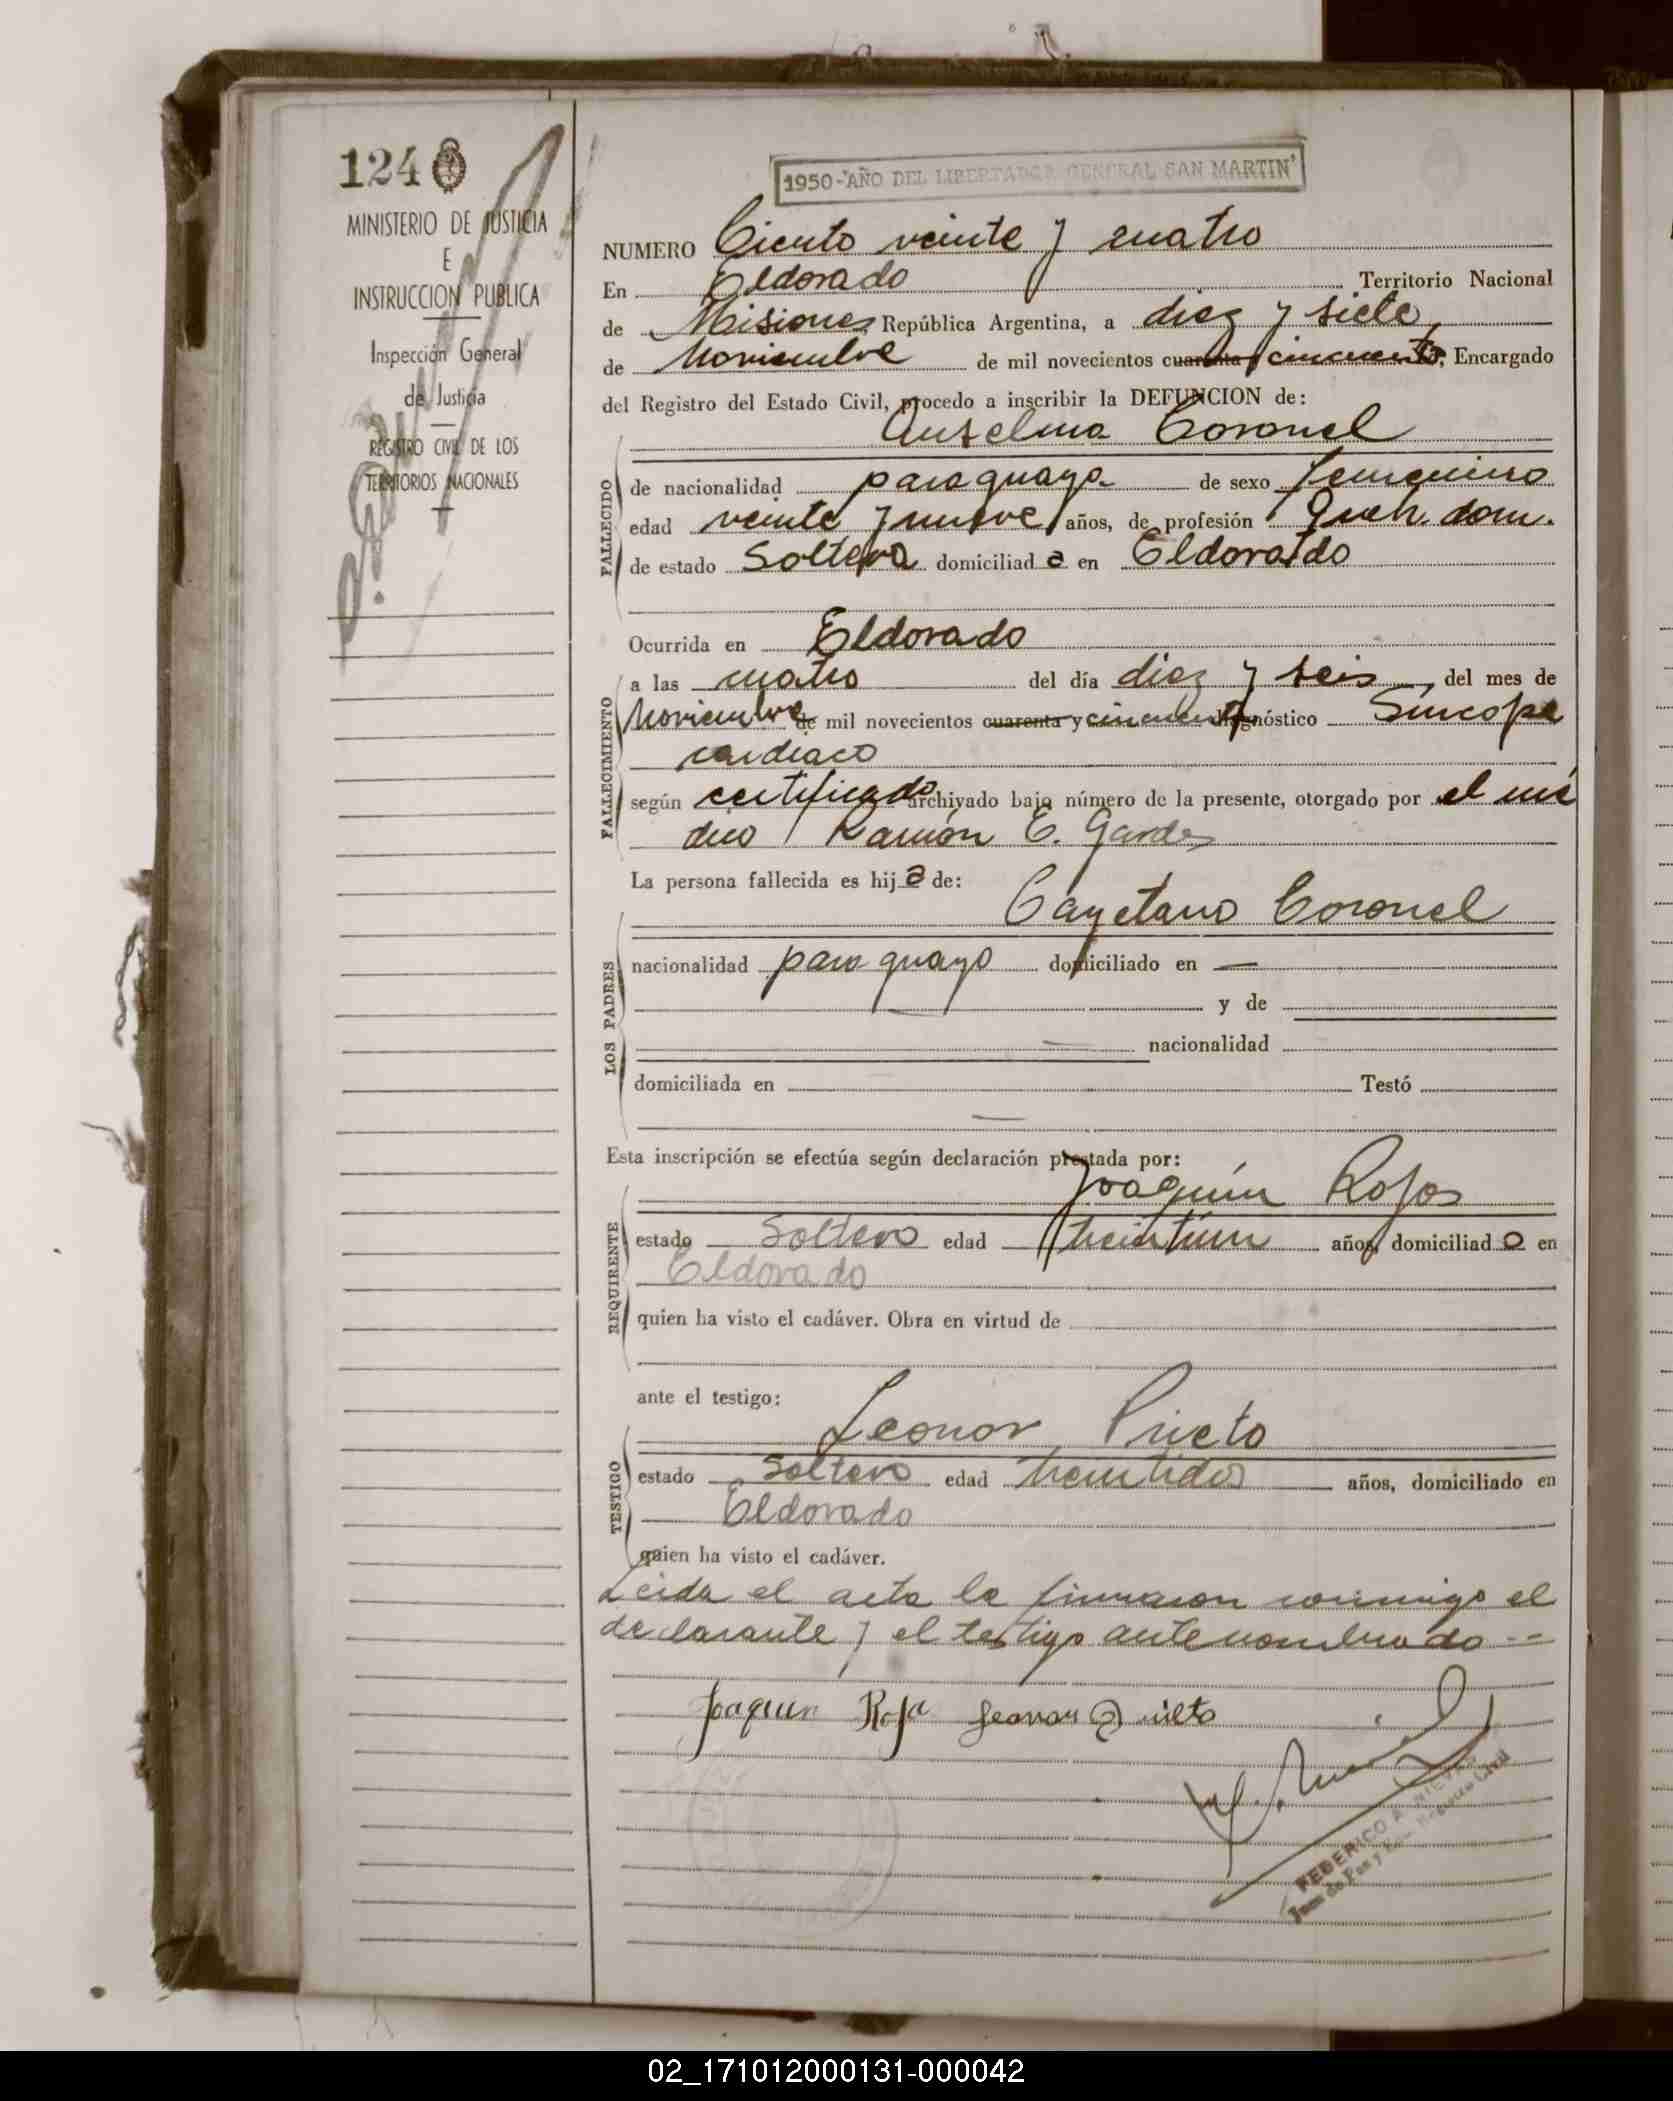 124
MINISTERIO DE JUSTICIA
E
INSTRUCCION PUBLICA
Inspección General
de Justicia
REGISTRO CIVIL DE LOS
TERRITORIOS NACIONALES
1950-"AÑO DEL LIBERTADOR GENERAL SAN MARTIN"
NUMERO Ciento veinte y cuatro
En Eldorado Territorio Nacional
de Misiones República Argentina, a diez y siete,
de Noviembre de mil novecientos cuarenta y cincuenta, Encargado
del Registro del Estado Civil, procedo a inscribir la DEFUNCION de:
Anselma Coronel
FALLECIDO
de nacionalidad paraguaya de sexo femenino
edad veinte y nueve años, de profesión Queh. dom.
de estado Soltera domiciliad a en Eldorado
Ocurrida en Eldorado
FALLECIMIENTO
a las cuatro del día diez y seis, del mes de
Noviembre de mil novecientos cuarenta y cincuenta diagnóstico Síncope
cardiaco
según certificado archivado bajo número de la presente, otorgado por el mé
dico Ramón E. Gardes
La persona fallecida es hij a de:
Cayetano Coronel
LOS PADRES
nacionalidad paraguayo domiciliado en —
y de
nacionalidad
domiciliada en Testó
Esta inscripción se efectúa según declaración prestada por:
Joaquín Rojas
REQUIRENTE
estado Soltero edad treintiún años, domiciliad o en
Eldorado
quien ha visto el cadáver. Obra en virtud de
ante el testigo:
Leonor Prieto
TESTIGO
estado Soltero edad treintidos años, domiciliado en
Eldorado
quien ha visto el cadáver.
Leida el acta la firmaron conmigo el
declarante y el testigo antenombrado --
Joaquin Roja Leonor Prieto
FEDERICO A. NIEVAS
Juez de Paz y Enc. Registro Civil
02_171012000131-000042